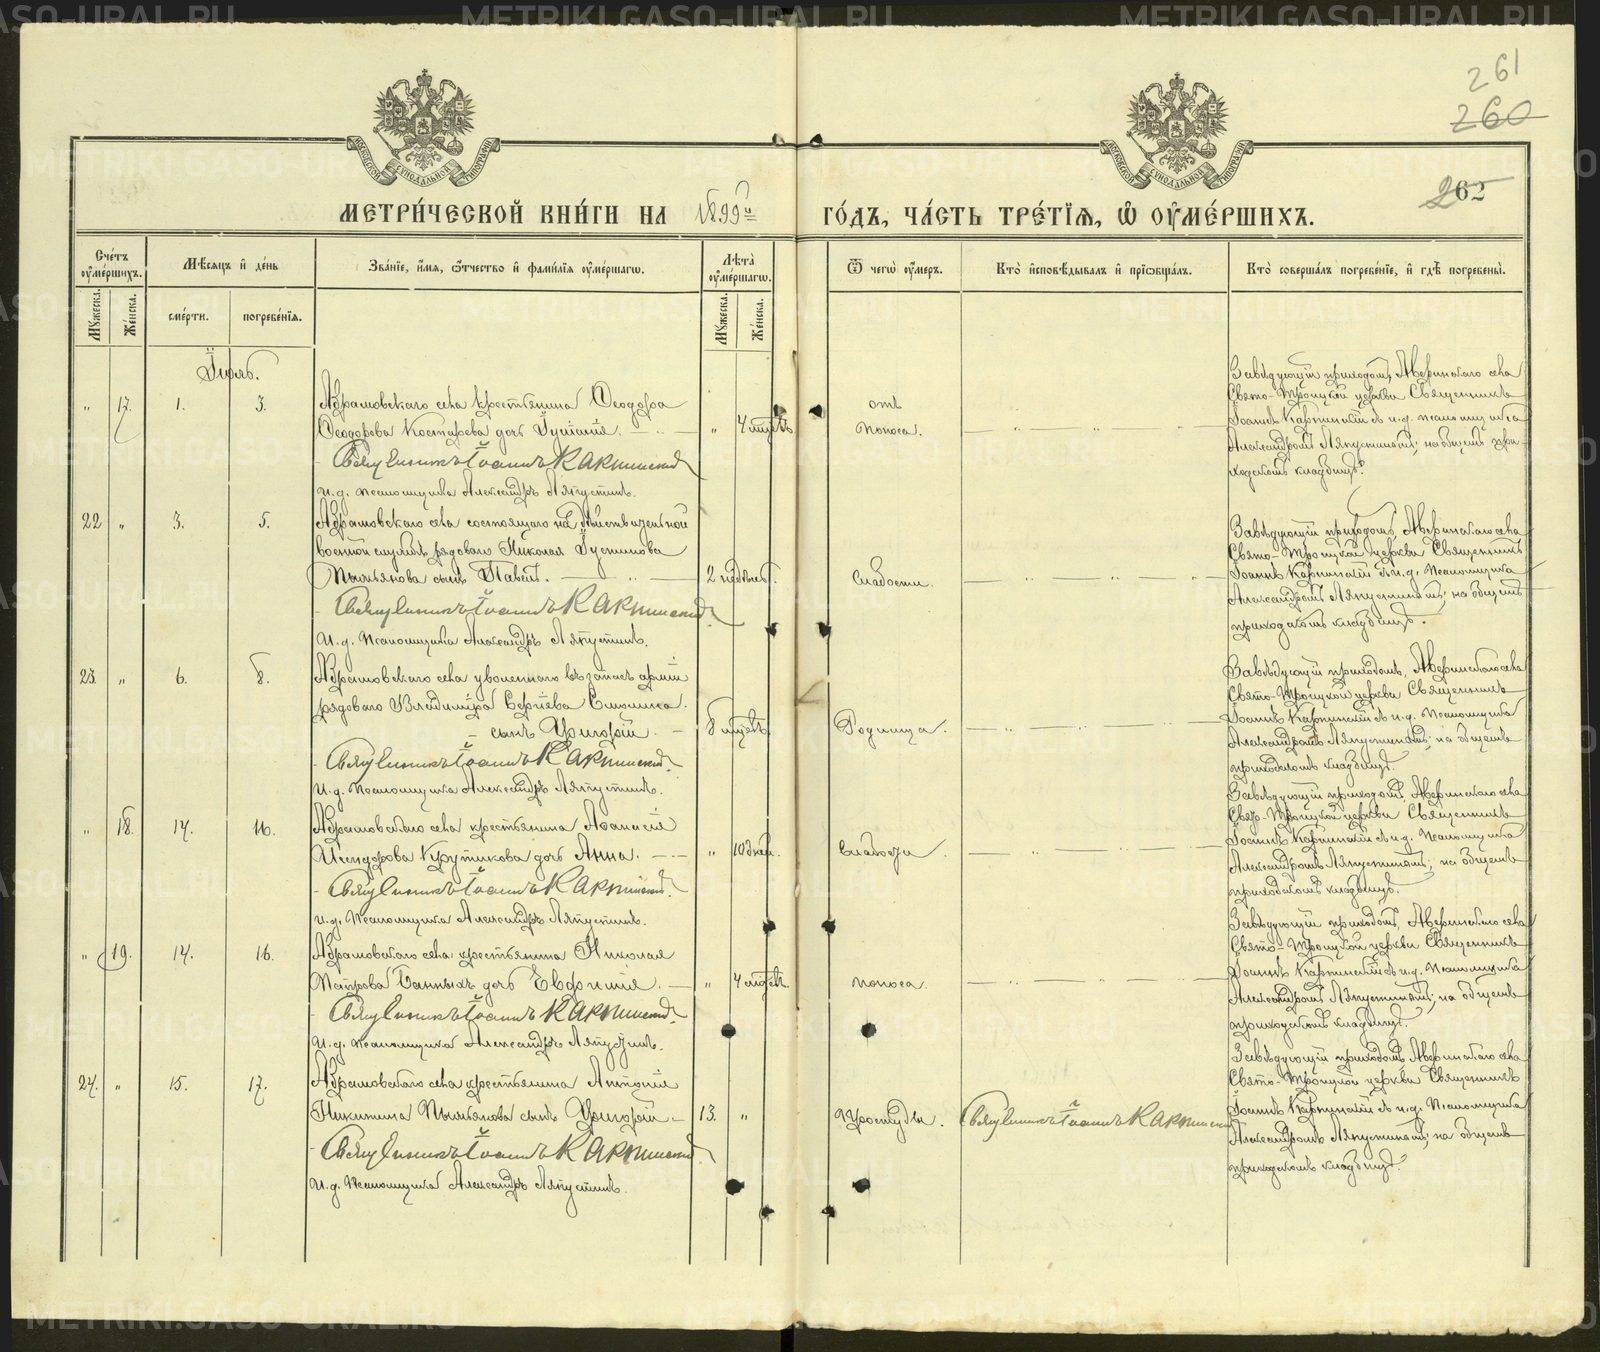 261
260
262
МОСКОВСКОЙ СѴНОДАЛЬНОЙ ТИПОГРАФІИ
МОСКОВСКОЙ СѴНОДАЛЬНОЙ ТИПОГРАФІИ
МЕТРИ́ЧЕСКОЙ КНИ́ГИ НА 1899й ГО́ДЪ, ЧА́СТЬ ТРЕ́ТІѦ, Ѡ҆ ОУ҆МЕ́РШИХЪ.
Сче́тъ оу҆ме́ршихъ.
Мѣ́сяцъ и҆ де́нь
Зва́ніе, и҆́мя, ѻ҆́тчество и҆ фами́лія оу҆ме́ршагѡ.
Лѣ́та оу҆ме́ршагѡ.
Ѿ чегѡ̀ оу҆́меръ.
Кто̀ и҆сповѣ́дывалъ и҆ прїѡбща́лъ.
Кто̀ соверша́лъ погребе́ніе, и҆ гдѣ̀ погребены̀.
Мꙋ́жеска.
Же́нска.
сме́рти.
погребе́нія.
Мꙋ́жеска.
Же́нска.
Іюль.
" 17. 1. 3.
Абрамовскаго села крестьянина Ѳеодора
Ѳеодорова Костырева дочь Іуліанія.
Священникъ Іоаннъ Карпинскій
и.д. псаломщика Александръ Ляпустинъ.
" 4 мѣсяц.
отъ
поноса.
Завѣдующій приходомъ, Аверинскаго села
Свято-Троицкой церкви Священникъ
Іоаннъ Карпинскій съ и.д. псаломщика
Александромъ Ляпустинымъ; на общемъ при-
ходскомъ кладбищѣ.
22 " 3. 5.
Абрамовскаго села состоящаго на дѣйствительной
военной службѣ рядоваго Николая Іустинова
Пьянкова сынъ Павелъ.
Священникъ Іоаннъ Карпинскій.
И.д. псаломщика Александръ Ляпустинъ.
2 недѣль.
Слабости.
Завѣдующій приходомъ, Аверинскаго села
Свято-Троицкой церкви Священникъ
Іоаннъ Карпинскій съ и.д. псаломщика
Александромъ Ляпустинымъ; на общемъ
приходскомъ кладбищѣ.
23. " 6. 8.
Абрамовскаго села уволеннаго въ запасъ арміи
рядоваго Владиміра Сергіева
сынъ Григорій.
Священникъ Іоаннъ Карпинскій.
И.д. псаломщика Александръ Ляпустинъ.
8 мѣсяц.
Родимца.
Завѣдующій приходомъ, Аверинскаго села
Свято-Троицкой церкви Священникъ
Іоаннъ Карпинскій съ и.д. псаломщика
Александромъ Ляпустинымъ; на общемъ
приходскомъ кладбищѣ.
" 18. 14. 16.
Абрамовскаго села крестьянина Аѳанасія
Исидорова Крутикова дочь Анна.
Священникъ Іоаннъ Карпинскій.
и.д. псаломщика Александръ Ляпустинъ.
" 10 дней.
Слабости.
Завѣдующій приходомъ, Аверинскаго села
Свято-Троицкой церкви Священникъ
Іоаннъ Карпинскій съ и.д. псаломщика
Александромъ Ляпустинымъ; на общемъ
приходскомъ кладбищѣ.
" 19. 14. 16.
Абрамовскаго села крестьянина Николая
дочь Евфимія.
Священникъ Іоаннъ Карпинскій.
И.д. псаломщика Александръ Ляпустинъ.
" 4 мѣсяц.
поноса.
Завѣдующій приходомъ, Аверинскаго села
Свято-Троицкой церкви Священникъ
Іоаннъ Карпинскій съ и.д. псаломщика
Александромъ Ляпустинымъ; на общемъ
приходскомъ кладбищѣ.
24. " 15. 17.
Абрамовскаго села крестьянина Антонія
Никитина Пьянкова сынъ Григорій
Священникъ Іоаннъ Карпинскій.
И.д. псаломщика Александръ Ляпустинъ.
13. "
Простуды.
Священникъ Іоаннъ Карпинскій
Завѣдующій приходомъ, Аверинскаго села
Свято-Троицкой церкви Священникъ
Іоаннъ Карпинскій съ и.д. псаломщика
Александромъ Ляпустинымъ; на общемъ
приходскомъ кладбищѣ.
METRIKI.GASO-URAL.RU